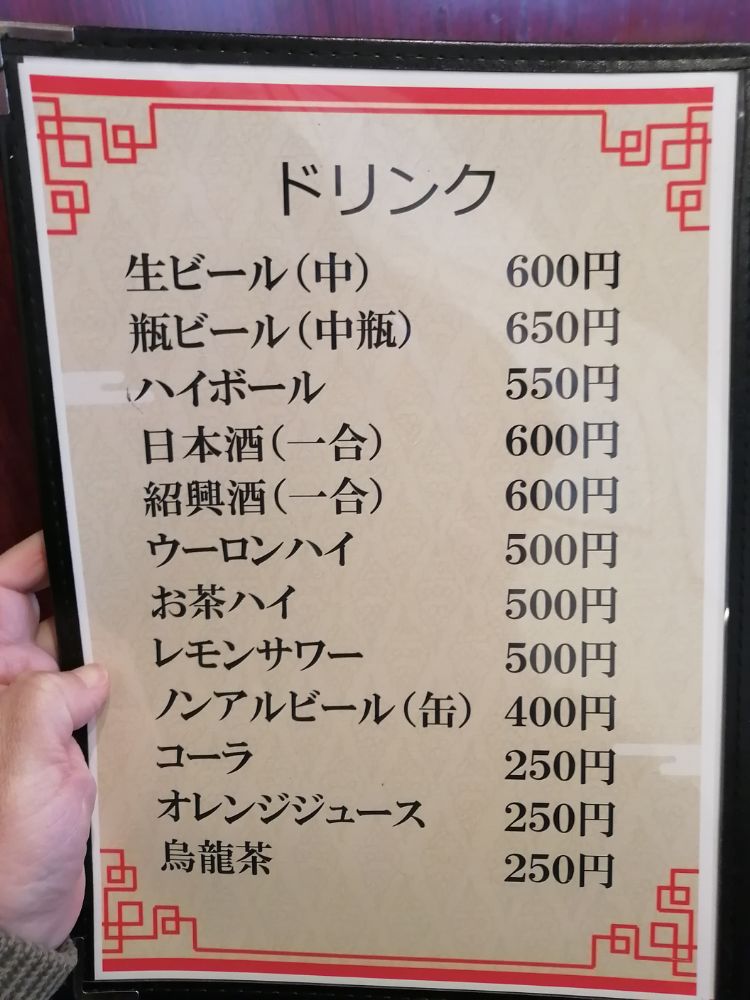 ドリンク
生ビール(中) 600円
瓶ビール(中瓶) 650円
ハイボール 550円
日本酒(一合) 600円
紹興酒(一合) 600円
ウーロンハイ 500円
お茶ハイ 500円
レモンサワー 500円
ノンアルビール(缶) 400円
コーラ 250円
オレンジジュース 250円
烏龍茶 250円